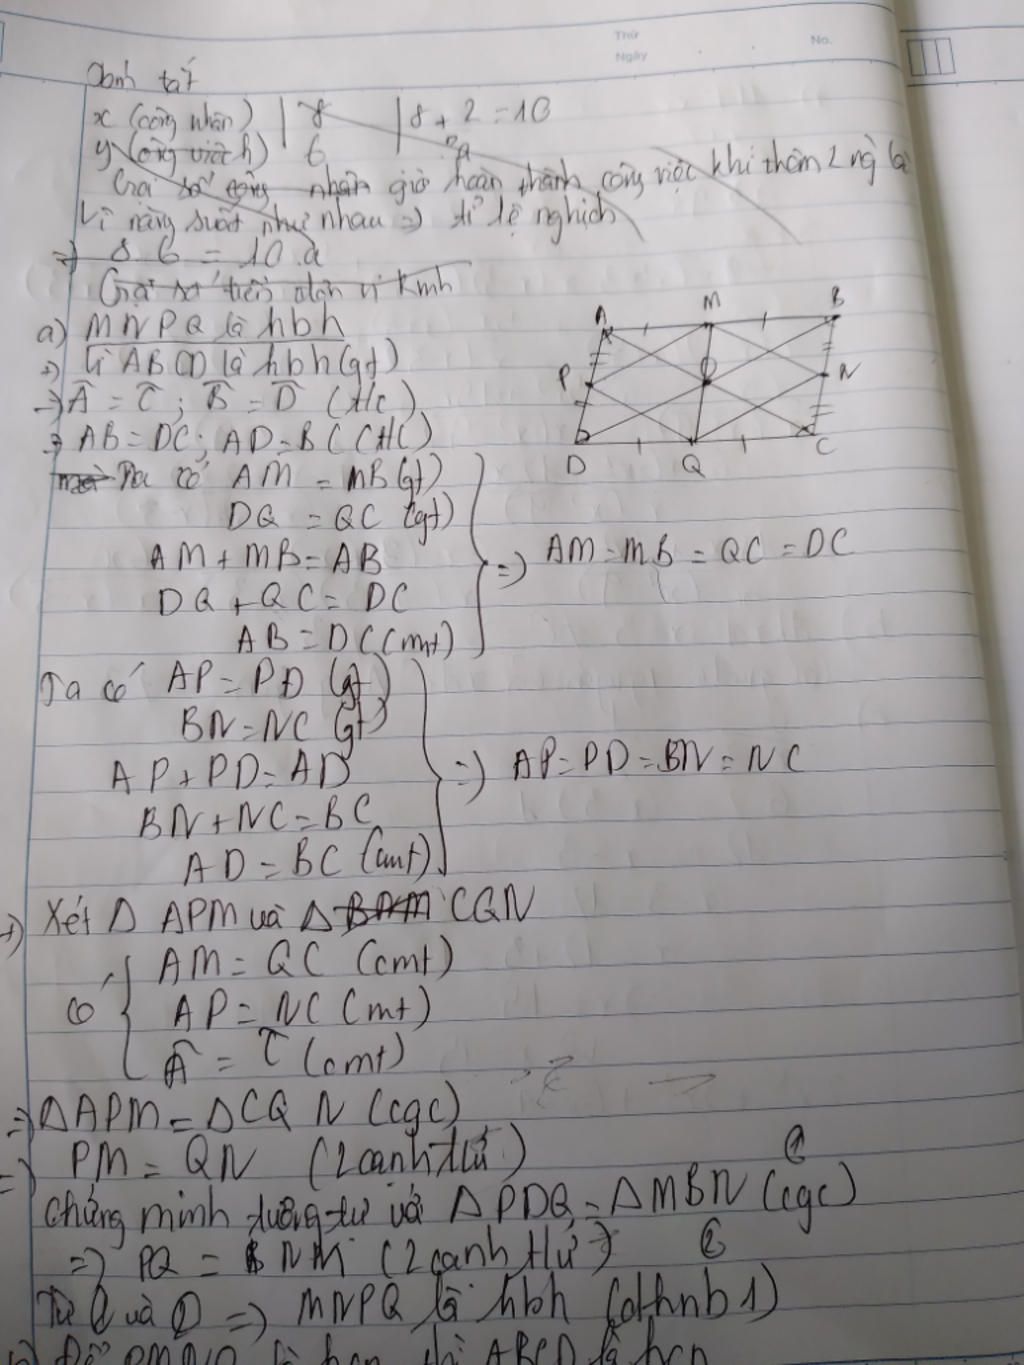 Thứ
Ngày
No.
tắt
x (công nhân) | 8 | 8 + 2 = 10
y (công việc h) 6 a
Gọi số công nhân giờ hoàn thành công việc khi thêm 2 ng là
Vì năng suất như nhau => tỉ lệ nghịch
=> 8.6 = 10.a
Gọi số tiền
a) MNPQ là hbh
Vì ABCD là hbh (gt)
=> Â = Ĉ ; B̂ = D̂ (t/c)
=> AB = DC ; AD = BC (t/c)
Ta có AM = MB (gt)
DQ = QC (gt)
AM + MB = AB
DQ + QC = DC
AB = DC (cmt)
=> AM = MB = QC = DC
Ta có AP = PD (gt)
BN = NC (gt)
AP + PD = AD
BN + NC = BC
AD = BC (cmt)
=> AP = PD = BN = NC
A M B
P O N
D Q C
Xét Δ APM và Δ CQN
có { AM = QC (cmt)
AP = NC (cmt)
Â = Ĉ (cmt)
=> ΔAPM = ΔCQN (cgc)
=> PM = QN (2 cạnh tứ) ①
Chứng minh tương tự với ΔPDQ = ΔMBN (cgc)
=> PQ = NM (2 cạnh tứ) ②
Từ ① và ② => MNPQ là hbh (dhnb 1)
b) Để PMNQ là hcn thì ABCD là hcn